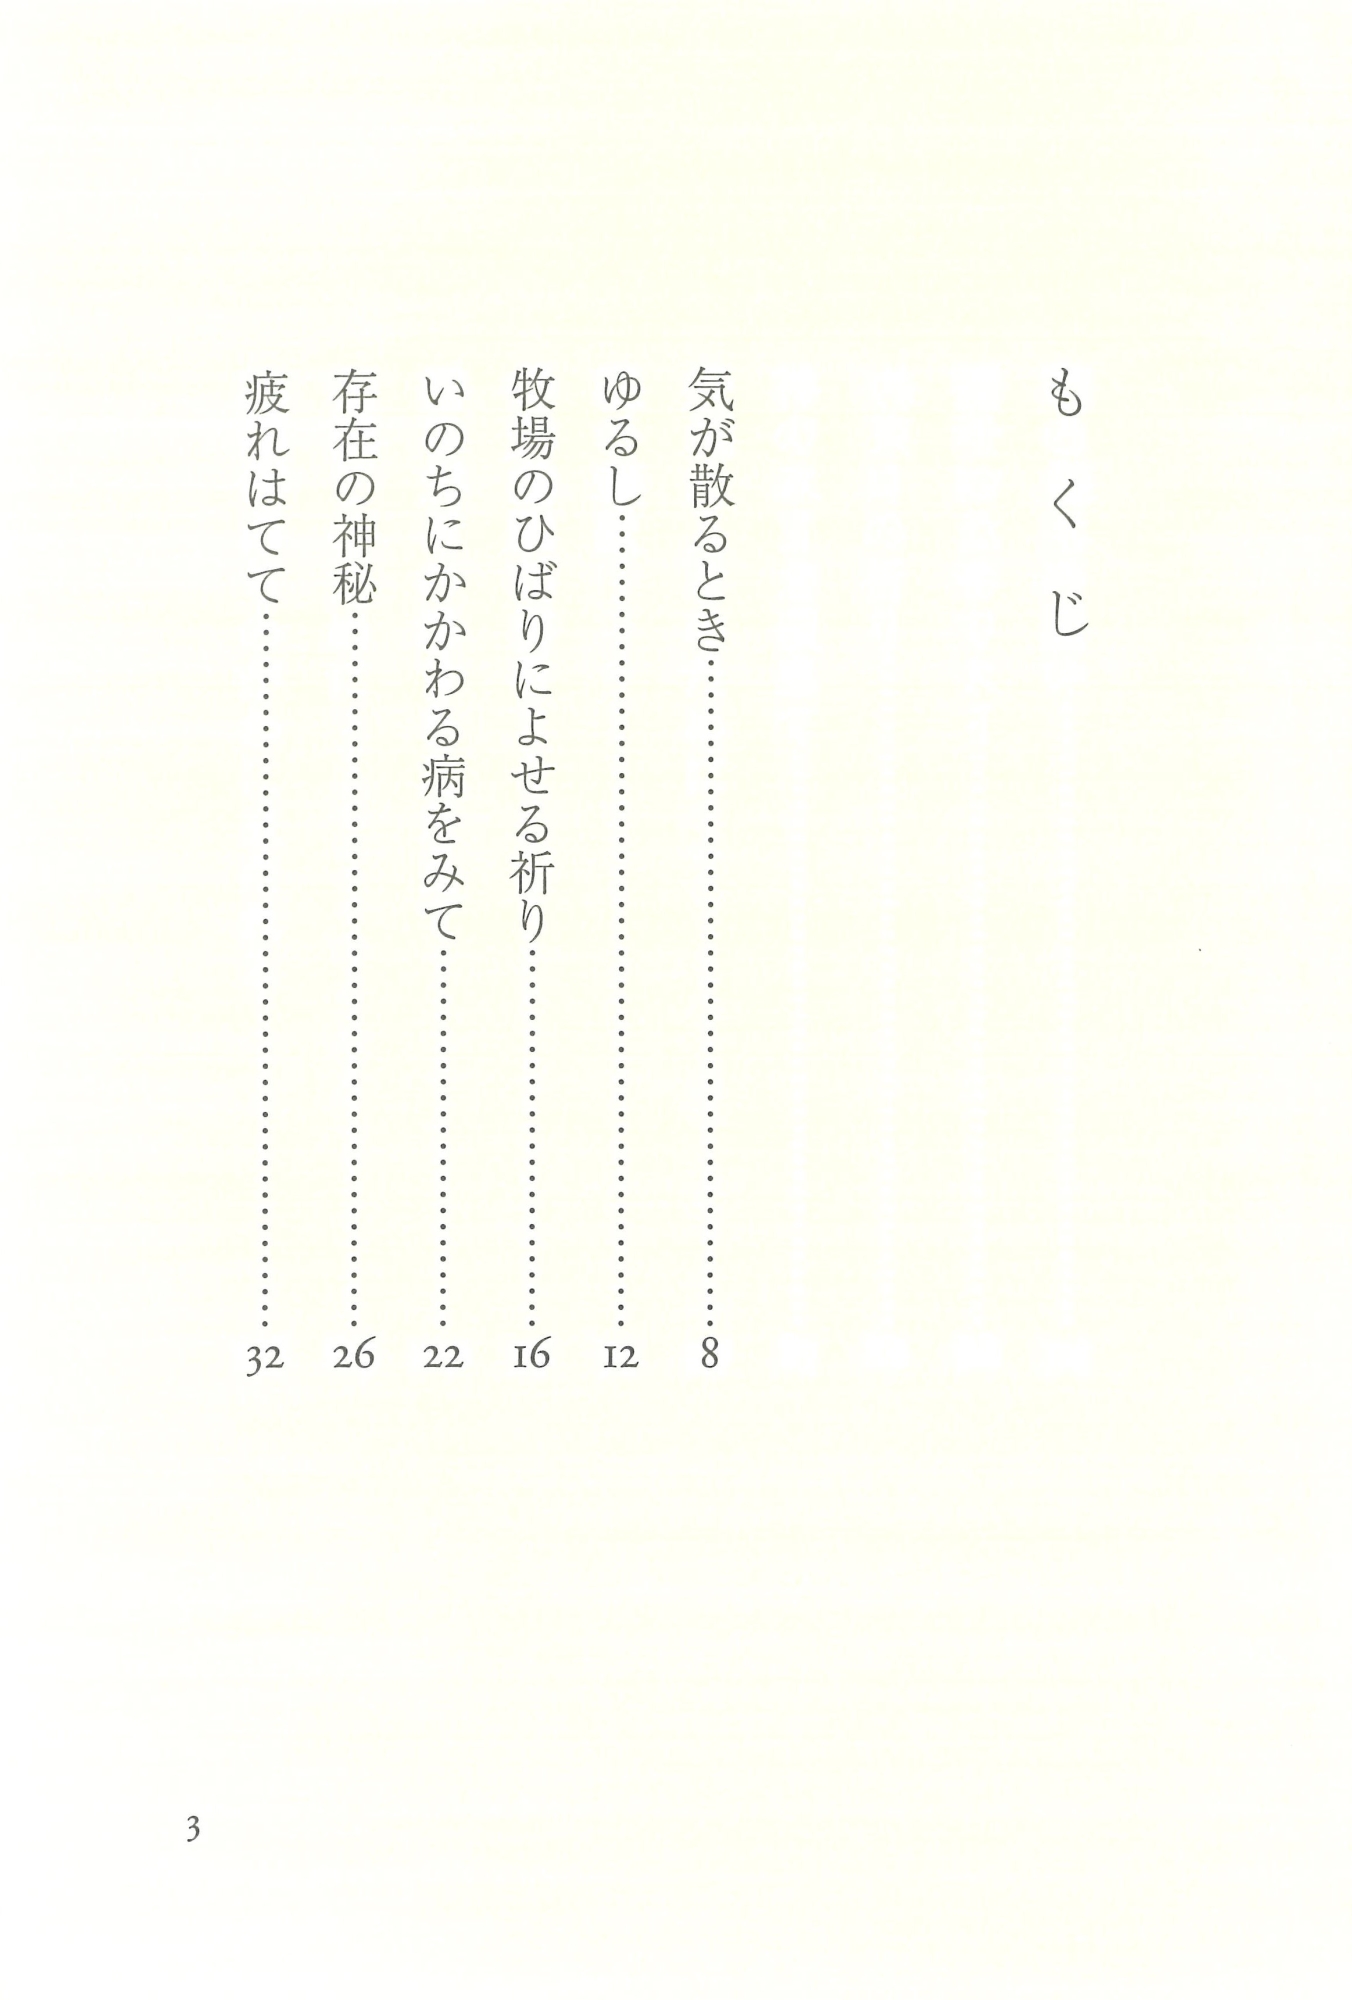 もくじ
気が散るとき……………………………………… 8
ゆるし……………………………………………… 12
牧場のひばりによせる祈り……………………… 16
いのちにかかわる病をみて……………………… 22
存在の神秘………………………………………… 26
疲れはてて………………………………………… 32
3